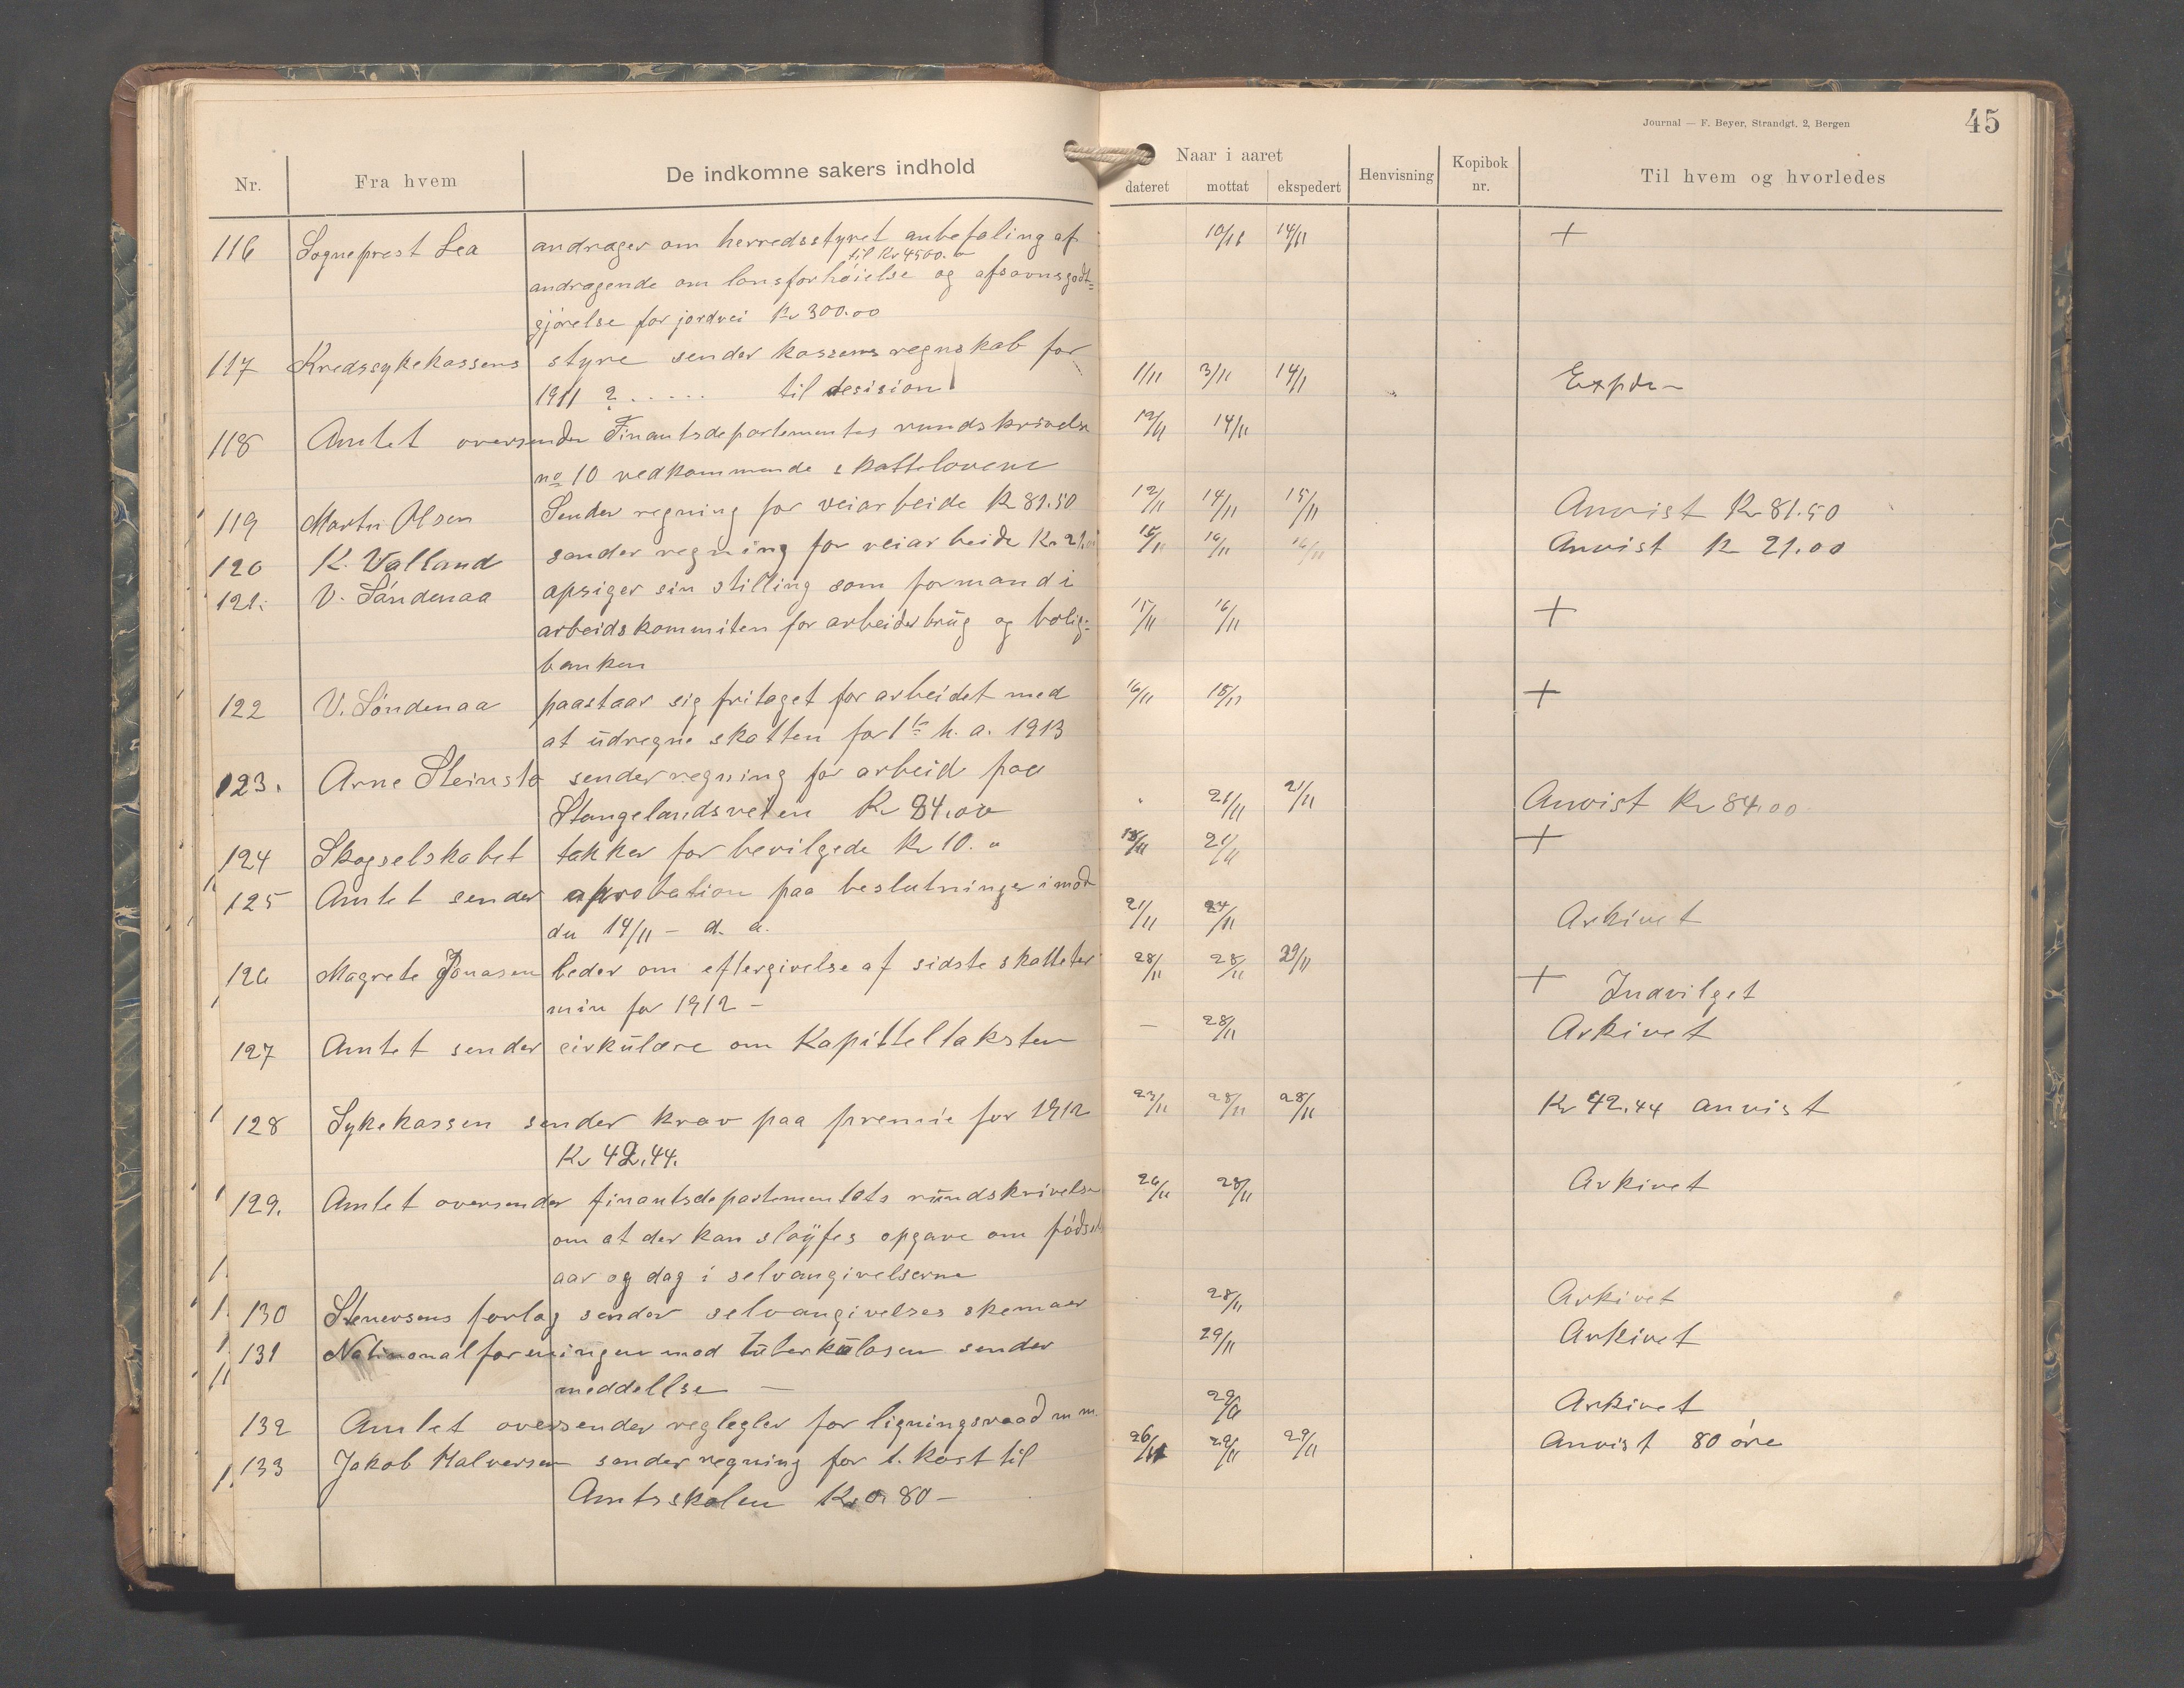 Journal — F. Beyer, Strandgt. 2, Bergen
45
Nr. Fra hvem De indkomne sakers indhold Naar i aaret dateret mottat ekspedert Henvisning Kopibok nr. Til hvem og hvorledes
116 Sogneprest Lea andrager om herredsstyret anbefaling af 10/11 14/11 +
til Kr 4500.
andragende om lønsforhøielse og afsavnsgodt=
gjørelse for jordvei Kr 300.00
117 Kredssykekassens styre sender kassens regnskab for
1911 2 ..... til desision 1/11 3/11 14/11 Expd
118 Amtet oversender Finantsdepartementes rundskrivelse 12/11 14/11
no 10 vedkommende skattelovene
119 Martin Olsen Sender regning for veiarbeide Kr 81.50 12/11 14/11 15/11 Anvist Kr 81.50
120 K. Valland sender regning for veiarbeide Kr. 21.00 15/11 16/11 16/11 Anvist Kr 21.00
121. V. Söndenaa opsiger sin stilling som formand i
arbeidskommiten for arbeiderbrüg og bolig= 15/11 16/11 +
banken
122 V. Söndenaa paastaar sig fritaget for arbeidet med 16/11 18/11 +
at üdregne skatten for 1ste h. a. 1913
123. Arne Steinstø sender regning for arbeid paa
Stangelandsveien Kr 84.00 21/11 21/11 Anvist Kr 84.00
124 Skogselskabet takker for bevilgede Kr 10. " 18/11 21/11 +
125 Amtet sender aprobation paa beslutninger i mød
du 14/11 - d. a. 21/11 24/11 Arkivet
126 Magrete Jonasen beder om eftergivelse af sidste skatteter 28/11 28/11 29/11 + Indvilget
min for 1912 -
127 Amtet sender cirkülære om Kapitteltaksten - 28/11 Arkivet
128 Sykekassen sender krav paa premie for 1912 23/11 28/11 28/11 Kr 42.44 anvist
Kr 42.44.
129. Amtet oversender finantsdepartementets ründskrivelse 26/11 28/11 Arkivet
om at der kan sløyfes opgave om fødsels
aar og dag i selvangivelserne
130 Stenersens forlag sender selvangivelses skemaer 28/11 Arkivet
131 Nationalforeningen mod tüberkülosen sender 29/11 Arkivet
meddellse -
132 Amtet oversender reglegler for ligningsraad m m. 29/11 Arkivet
133 Jakob Halversen sender regning for t. kost til 26/11 29/11 29/11 Anvist 80 øre
Amtsskolen Kr 0.80 -